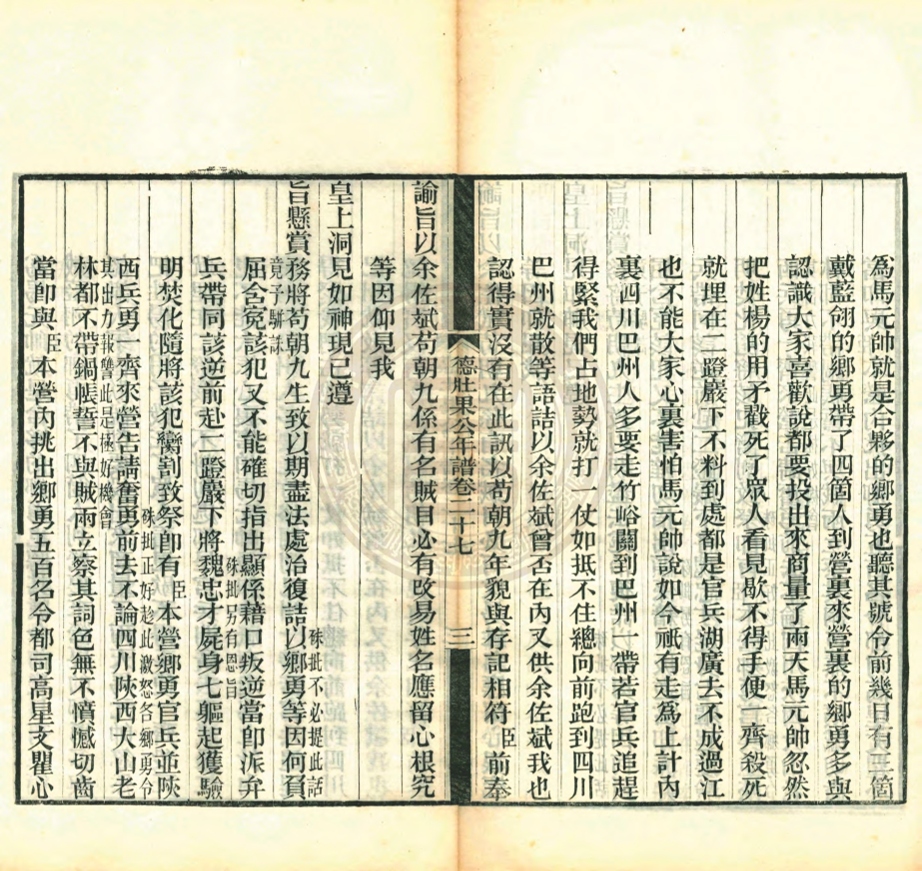 為馬元帥就是合夥的鄉勇也聽其號令前幾日有三箇
戴藍翎的鄉勇帶了四箇人到營裏來營裏的鄉勇多與
認識大家喜歡說都要投出來商量了兩天馬元帥忽然
把姓楊的用矛戳死了眾人看見歇不得手便一齊殺死
就埋在二蹬巖下不料到處都是官兵湖廣去不成過江
也不能大家心裏害怕馬元帥說如今祇有走為上計內
裏四川巴州人多要走竹峪關到巴州一帶若官兵追趕
得緊我們占地勢就打一仗如抵不住總向前跑到四川
巴州就散等語詰以余佐斌曾否在內又供余佐斌我也
認得實沒有在此訊以苟朝九年貌與存記相符臣前奉
德壯果公年譜卷二十七 三
諭旨以余佐斌苟朝九係有名賊目必有改易姓名應留心根究
等因仰見我
皇上洞見如神現已遵
旨懸賞務將苟朝九生致以期盡法處治復詰以鄉勇等因何負
硃批不必提此話
竟予駢誅
屈含冤該犯又不能確切指出顯係藉口叛逆當卽派弁
硃批另有恩旨
兵帶同該逆前赴二蹬巖下將魏忠才屍身七軀起獲驗
明焚化隨將該犯臠割致祭卽有臣本營鄉勇官兵並陝
硃批正好趁此激怒各鄉勇令
西兵勇一齊來營告請奮勇前去不論四川陝西大山老
其出力報讐此是極好機會
林都不帶鍋帳誓不與賊兩立察其詞色無不憤憾切齒
當卽與臣本營內挑出鄉勇五百名令都司高星文瞿心